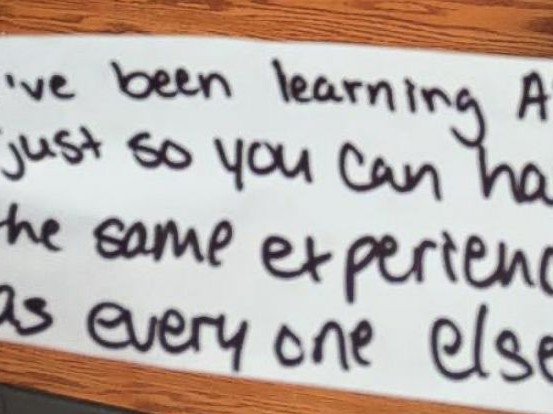 've been learning A
just so you can ha
the same experienc
as every one else